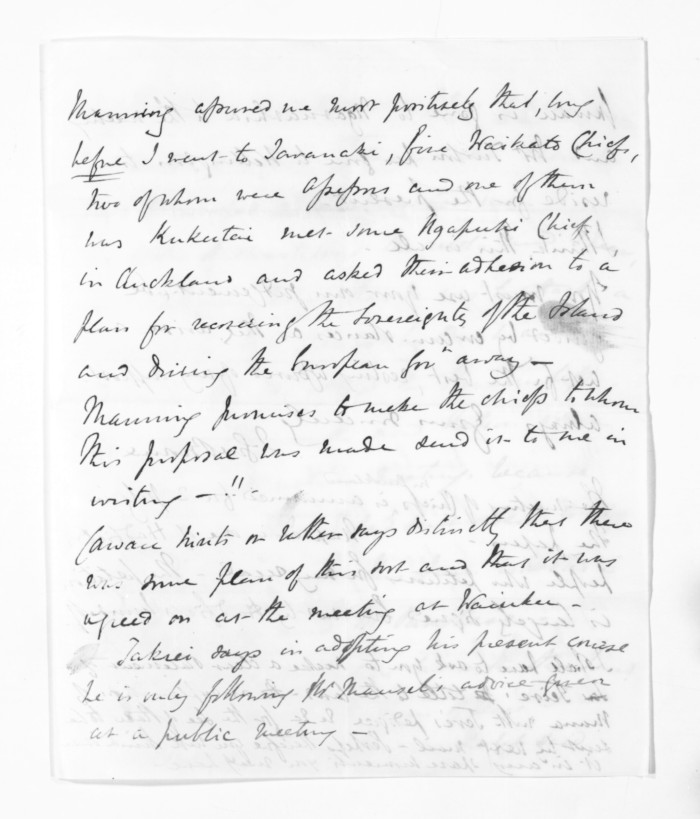 Manning assured me most positively that, long
before I went to Taranaki, five Waikato Chiefs,
two of whom were assessors and one of them
was Kukutai met some Ngapuhi Chiefs
in Auckland and asked their adhesion to a
plan for recovering the Sovereignty of the Island
and driving the European Govt away —
Manning promises to make the chiefs to whom
this proposal was made send it to me in
writing — !!
hints or rather says distinctly that there
was some plan of this sort and that it was
agreed on at the meeting at Waiuku —
says in adopting his present course
he is only following Mr Maunsell's advice given
at a public meeting —